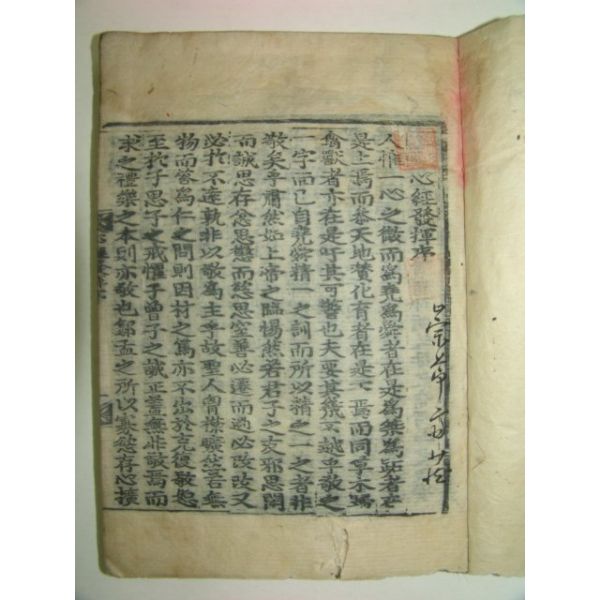 心經發揮序
人惟一心之微而爲堯爲舜者在是爲桀爲跖者亦
是上焉而參天地贊化育者在是下焉而同草木歸
禽獸者亦在是吁其可警也夫要其幾不越乎敬之
一字而已自堯舜精一之訓而所以精之一之者非
敬矣乎肅然如上帝之臨惕然若君子之友邪思閑
而誠思存忿思懲而慾思窒善必遷而過必改改又
必於不遠孰非以敬爲主乎故聖人胷襟曠然若無
物而答爲仁之問則因材之篤亦不出於克復敬恕
至於子思子之戒懼乎曾子之誠正要無非敬焉而
求之禮樂之本則亦敬也鄒孟之所以寡慾存心擴